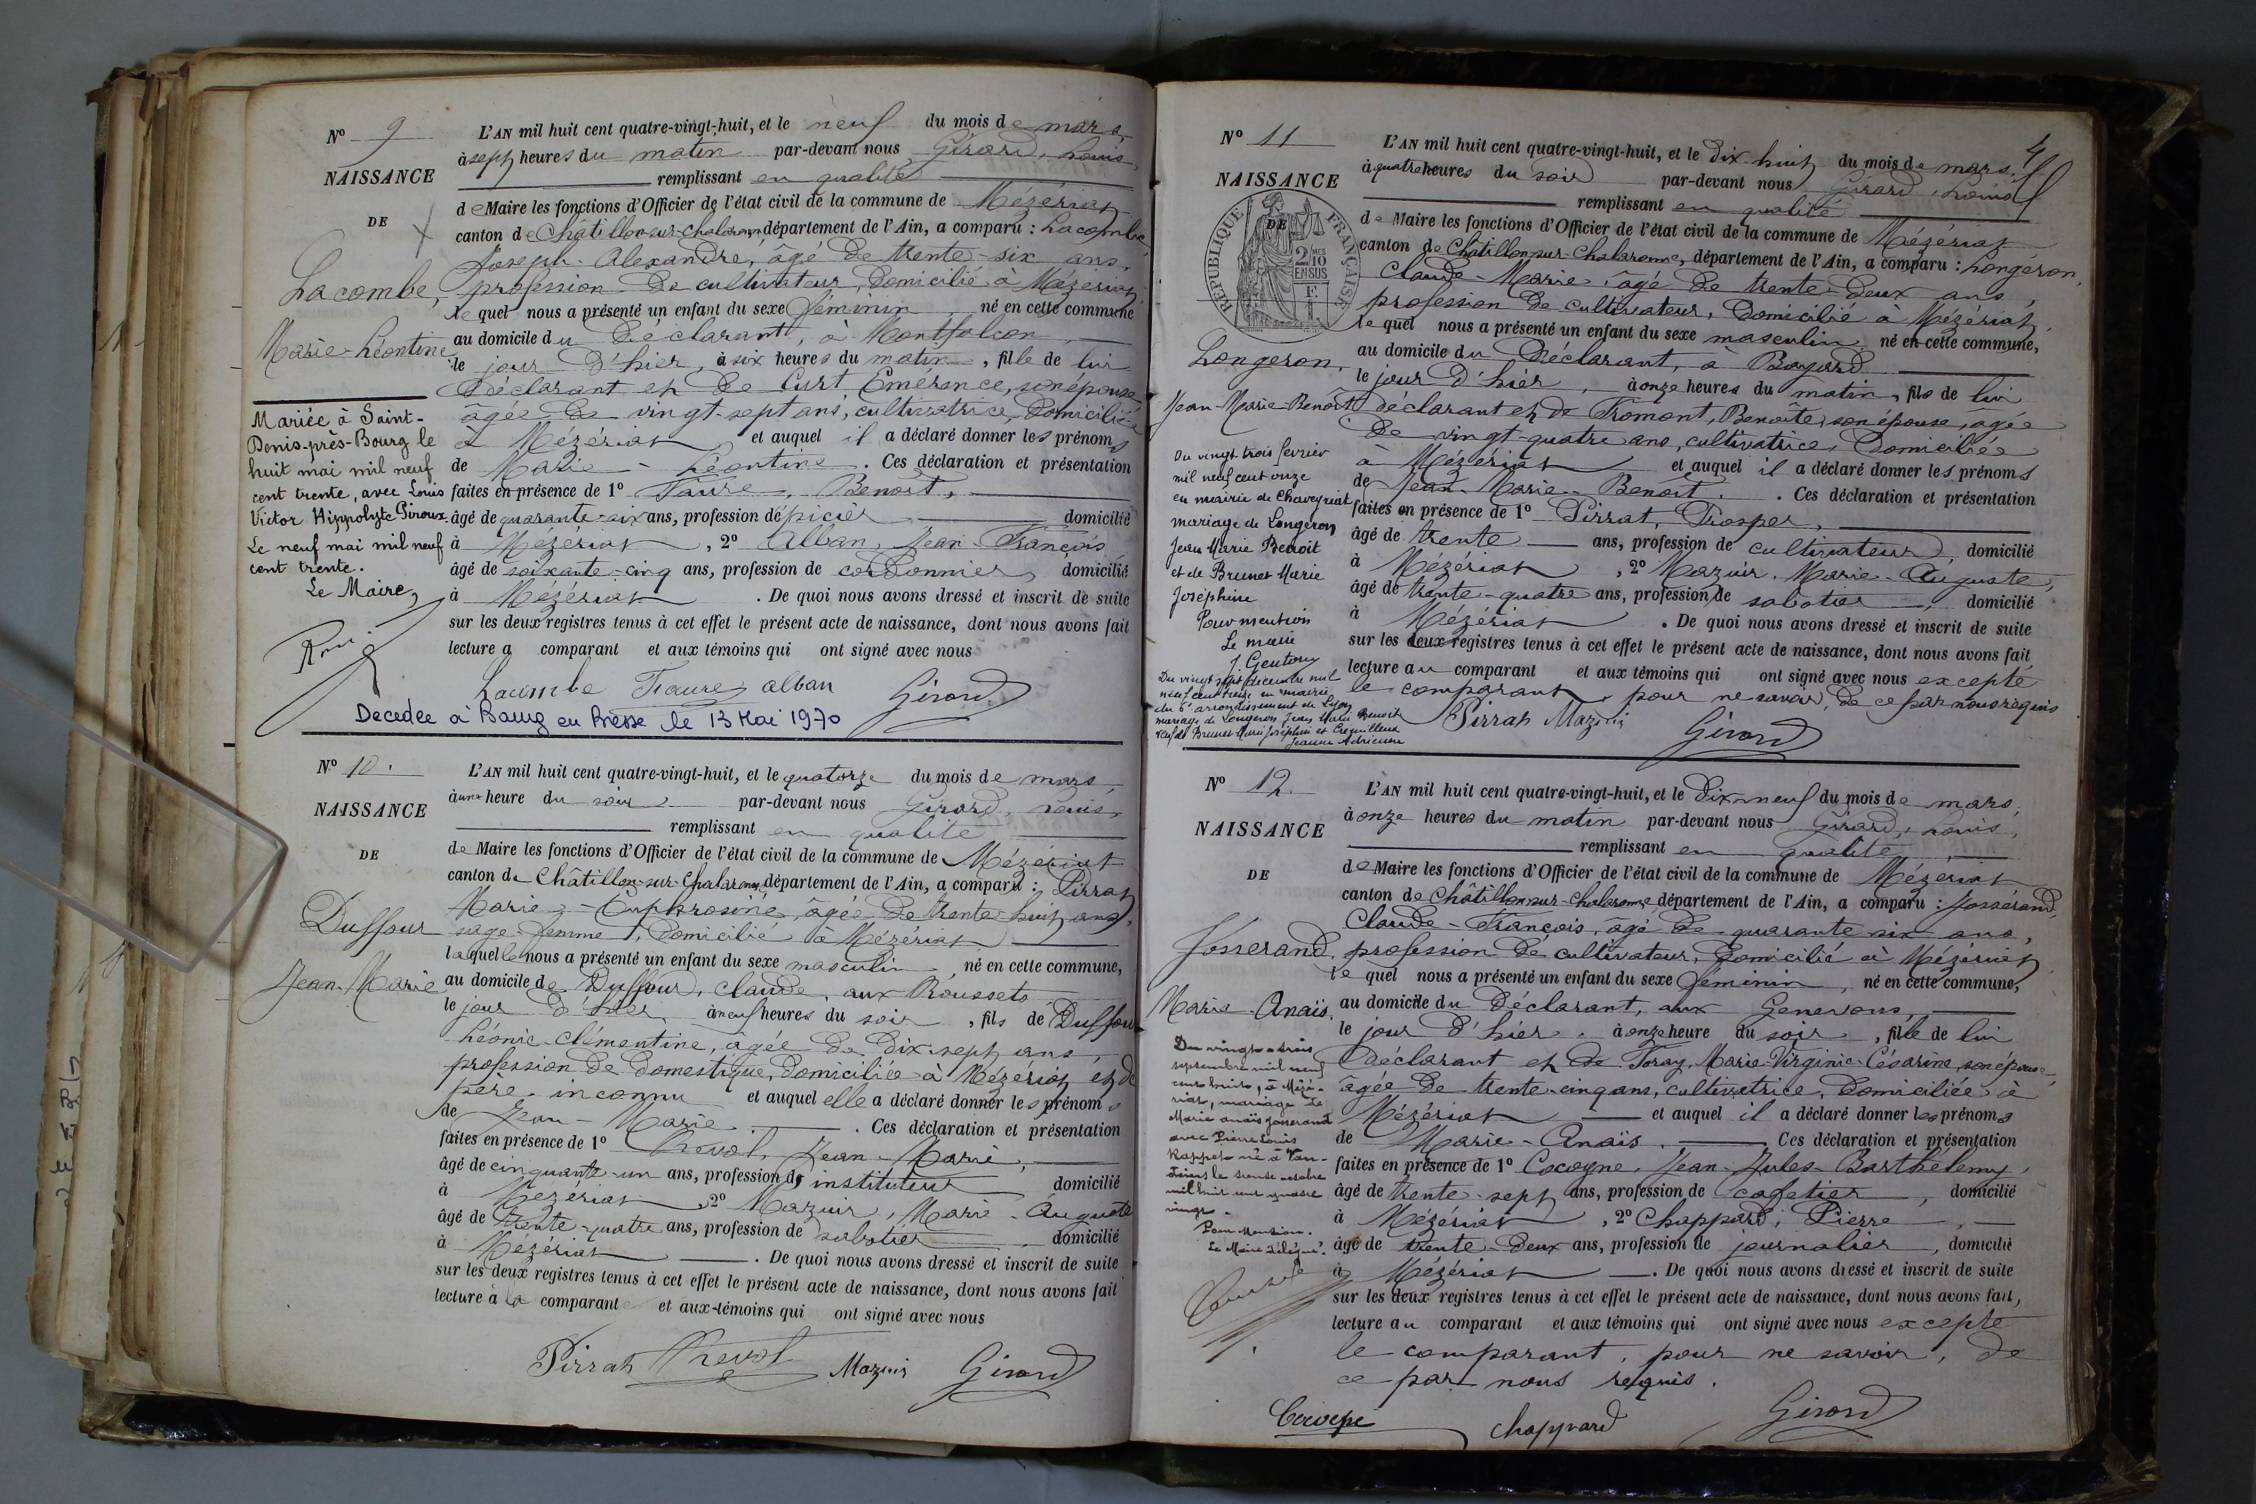 N° 9
NAISSANCE
DE
Lacombe,
Marie-Léontine
L'AN mil huit cent quatre-vingt-huit, et le neuf du mois de mars,
à sept heures du matin par-devant nous Girard, Louis,
remplissant en qualité
de Maire les fonctions d'Officier de l'état civil de la commune de Mézériat
canton de Châtillon-sur-Chalaronne, département de l'Ain, a comparu : Lacombe,
Joseph-Alexandre, âgé de trente-six ans,
profession de cultivateur, domicilié à Mézériat,
lequel nous a présenté un enfant du sexe féminin, né en cette commune
au domicile du déclarant, à Montfalcon,
le jour d'hier, à six heures du matin, fille de lui
déclarant et de Curt, Emérance, son épouse
âgée de vingt-sept ans, cultivatrice, domiciliée
à Mézériat, et auquel il a déclaré donner les prénoms
de Marie-Léontine. Ces déclaration et présentation
faites en présence de 1° Faure, Benoît,
âgé de quarante-six ans, profession d'épicier domicilié
à Mézériat, 2° Alban, Jean-François
âgé de soixante-cinq ans, profession de cordonnier, domicilié
à Mézériat. De quoi nous avons dressé et inscrit de suite
sur les deux registres tenus à cet effet le présent acte de naissance, dont nous avons fait
lecture a comparant et aux témoins qui ont signé avec nous
Lacombe Faure alban Girard
Mariée à Saint-
Denis-près-Bourg le
huit mai mil neuf
cent trente, avec Louis
Victor Hippolyte Piroux.
Le neuf mai mil neuf
cent trente.
Le Maire,
Decedée à Bourg en Bresse le 13 Mai 1970
N° 10.
NAISSANCE
DE
Duffour
Jean-Marie
L'AN mil huit cent quatre-vingt-huit, et le quatorze du mois de mars,
à une heure du soir par-devant nous Girard, Louis,
remplissant en qualité
de Maire les fonctions d'Officier de l'état civil de la commune de Mézériat
canton de Châtillon-sur-Chalaronne, département de l'Ain, a comparu : Pirrat
Marie-Euphrosine, âgée de trente-huit ans,
sage-femme, domicilié à Mézériat
laquelle nous a présenté un enfant du sexe masculin, né en cette commune,
au domicile de Duffour, Claude, aux Roussets
le jour d'hier, à neuf heures du soir, fils de Duffour
Léonie-Clémentine, âgée de dix-sept ans,
profession de domestique, domiciliée à Mézériat et de
père inconnu et auquel elle a déclaré donner les prénoms
de Jean-Marie. Ces déclaration et présentation
faites en présence de 1° Cheval, Jean-Marie,
âgé de cinquante-un ans, profession d'instituteur domicilié
à Mézériat, 2° Mazuir, Marie-Auguste
âgé de trente-quatre ans, profession de sabotier, domicilié
à Mézériat. De quoi nous avons dressé et inscrit de suite
sur les deux registres tenus à cet effet le présent acte de naissance, dont nous avons fait
lecture à la comparant et aux témoins qui ont signé avec nous
Pirrat Cheval Mazuir Girard
4
N° 11
NAISSANCE
DE
RÉPUBLIQUE FRANÇAISE
2/10 EN SUS
Longeron,
Jean-Marie-Benoît
L'AN mil huit cent quatre-vingt-huit, et le dix-huit du mois de mars,
à quatre heures du soir par-devant nous Girard, Louis
remplissant en qualité
de Maire les fonctions d'Officier de l'état civil de la commune de Mézériat
canton de Châtillon-sur-Chalaronne, département de l'Ain, a comparu : Longeron,
Claude-Marie, âgé de trente-deux ans,
profession de cultivateur, domicilié à Mézériat,
lequel nous a présenté un enfant du sexe masculin, né en cette commune,
au domicile du déclarant, à Bayard
le jour d'hier, à onze heures du matin, fils de lui
déclarant et de Fromont, Benoîte, son épouse, âgée
de vingt-quatre ans, cultivatrice, domiciliée
à Mézériat et auquel il a déclaré donner les prénoms
de Jean-Marie-Benoît. Ces déclaration et présentation
faites en présence de 1° Pirrat, Prosper,
âgé de trente ans, profession de cultivateur, domicilié
à Mézériat, 2° Mazuir, Marie-Auguste,
âgé de trente-quatre ans, profession de sabotier, domicilié
à Mézériat. De quoi nous avons dressé et inscrit de suite
sur les deux registres tenus à cet effet le présent acte de naissance, dont nous avons fait
lecture au comparant et aux témoins qui ont signé avec nous excepté
le comparant, pour ne savoir, de ce par nous requis
Pirrat Mazuir Girard
Du vingt trois février
mil neuf cent onze
en mairie de Chaveyriat
mariage de Longeron
Jean Marie Benoit
et de Brunet Marie
Joséphine
Pour mention
Le maire
Du vingt sept décembre mil
neuf cent treize en mairie
du 6e arrondissement de Lyon
mariage de Longeron Jean Marie Benoit
veuf de Brunet Marie Joséphine et
Jeanne Adrienne
N° 12.
NAISSANCE
DE
Josserand,
Marie-Anaïs.
L'AN mil huit cent quatre-vingt-huit, et le dix-neuf du mois de mars,
à onze heures du matin par-devant nous Girard, Louis,
remplissant en qualité
de Maire les fonctions d'Officier de l'état civil de la commune de Mézériat
canton de Châtillon-sur-Chalaronne département de l'Ain, a comparu : Josserand,
Claude-François, âgé de quarante-six ans,
profession de cultivateur, domicilié à Mézériat,
lequel nous a présenté un enfant du sexe féminin, né en cette commune,
au domicile du déclarant, aux Genevons,
le jour d'hier, à onze heure du soir, fille de lui
déclarant et de Foray, Marie-Virginie-Césarine, son épouse,
âgée de trente-cinq ans, cultivatrice, domiciliée à
Mézériat et auquel il a déclaré donner les prénoms
de Marie-Anaïs. Ces déclaration et présentation
faites en présence de 1° Cocogne, Jean-Jules-Barthélemy,
âgé de trente-sept ans, profession de cafetier, domicilié
à Mézériat, 2° Chappard, Pierre,
âgé de trente-deux ans, profession de journalier, domicilié
à Mézériat. De quoi nous avons dressé et inscrit de suite
sur les deux registres tenus à cet effet le présent acte de naissance, dont nous avons fait,
lecture au comparant et aux témoins qui ont signé avec nous excepté
le comparant, pour ne savoir, de
ce par nous requis.
Chappard Girard
Du vingt-trois
septembre mil neuf
cent huit, à Mézé-
riat, mariage de
Marie anaïs Josserand
avec Pierre Louis
né à Van-
deins le trente octobre
mil huit cent quatre
vingt.
Pour Mention.
Le Maire délégué.